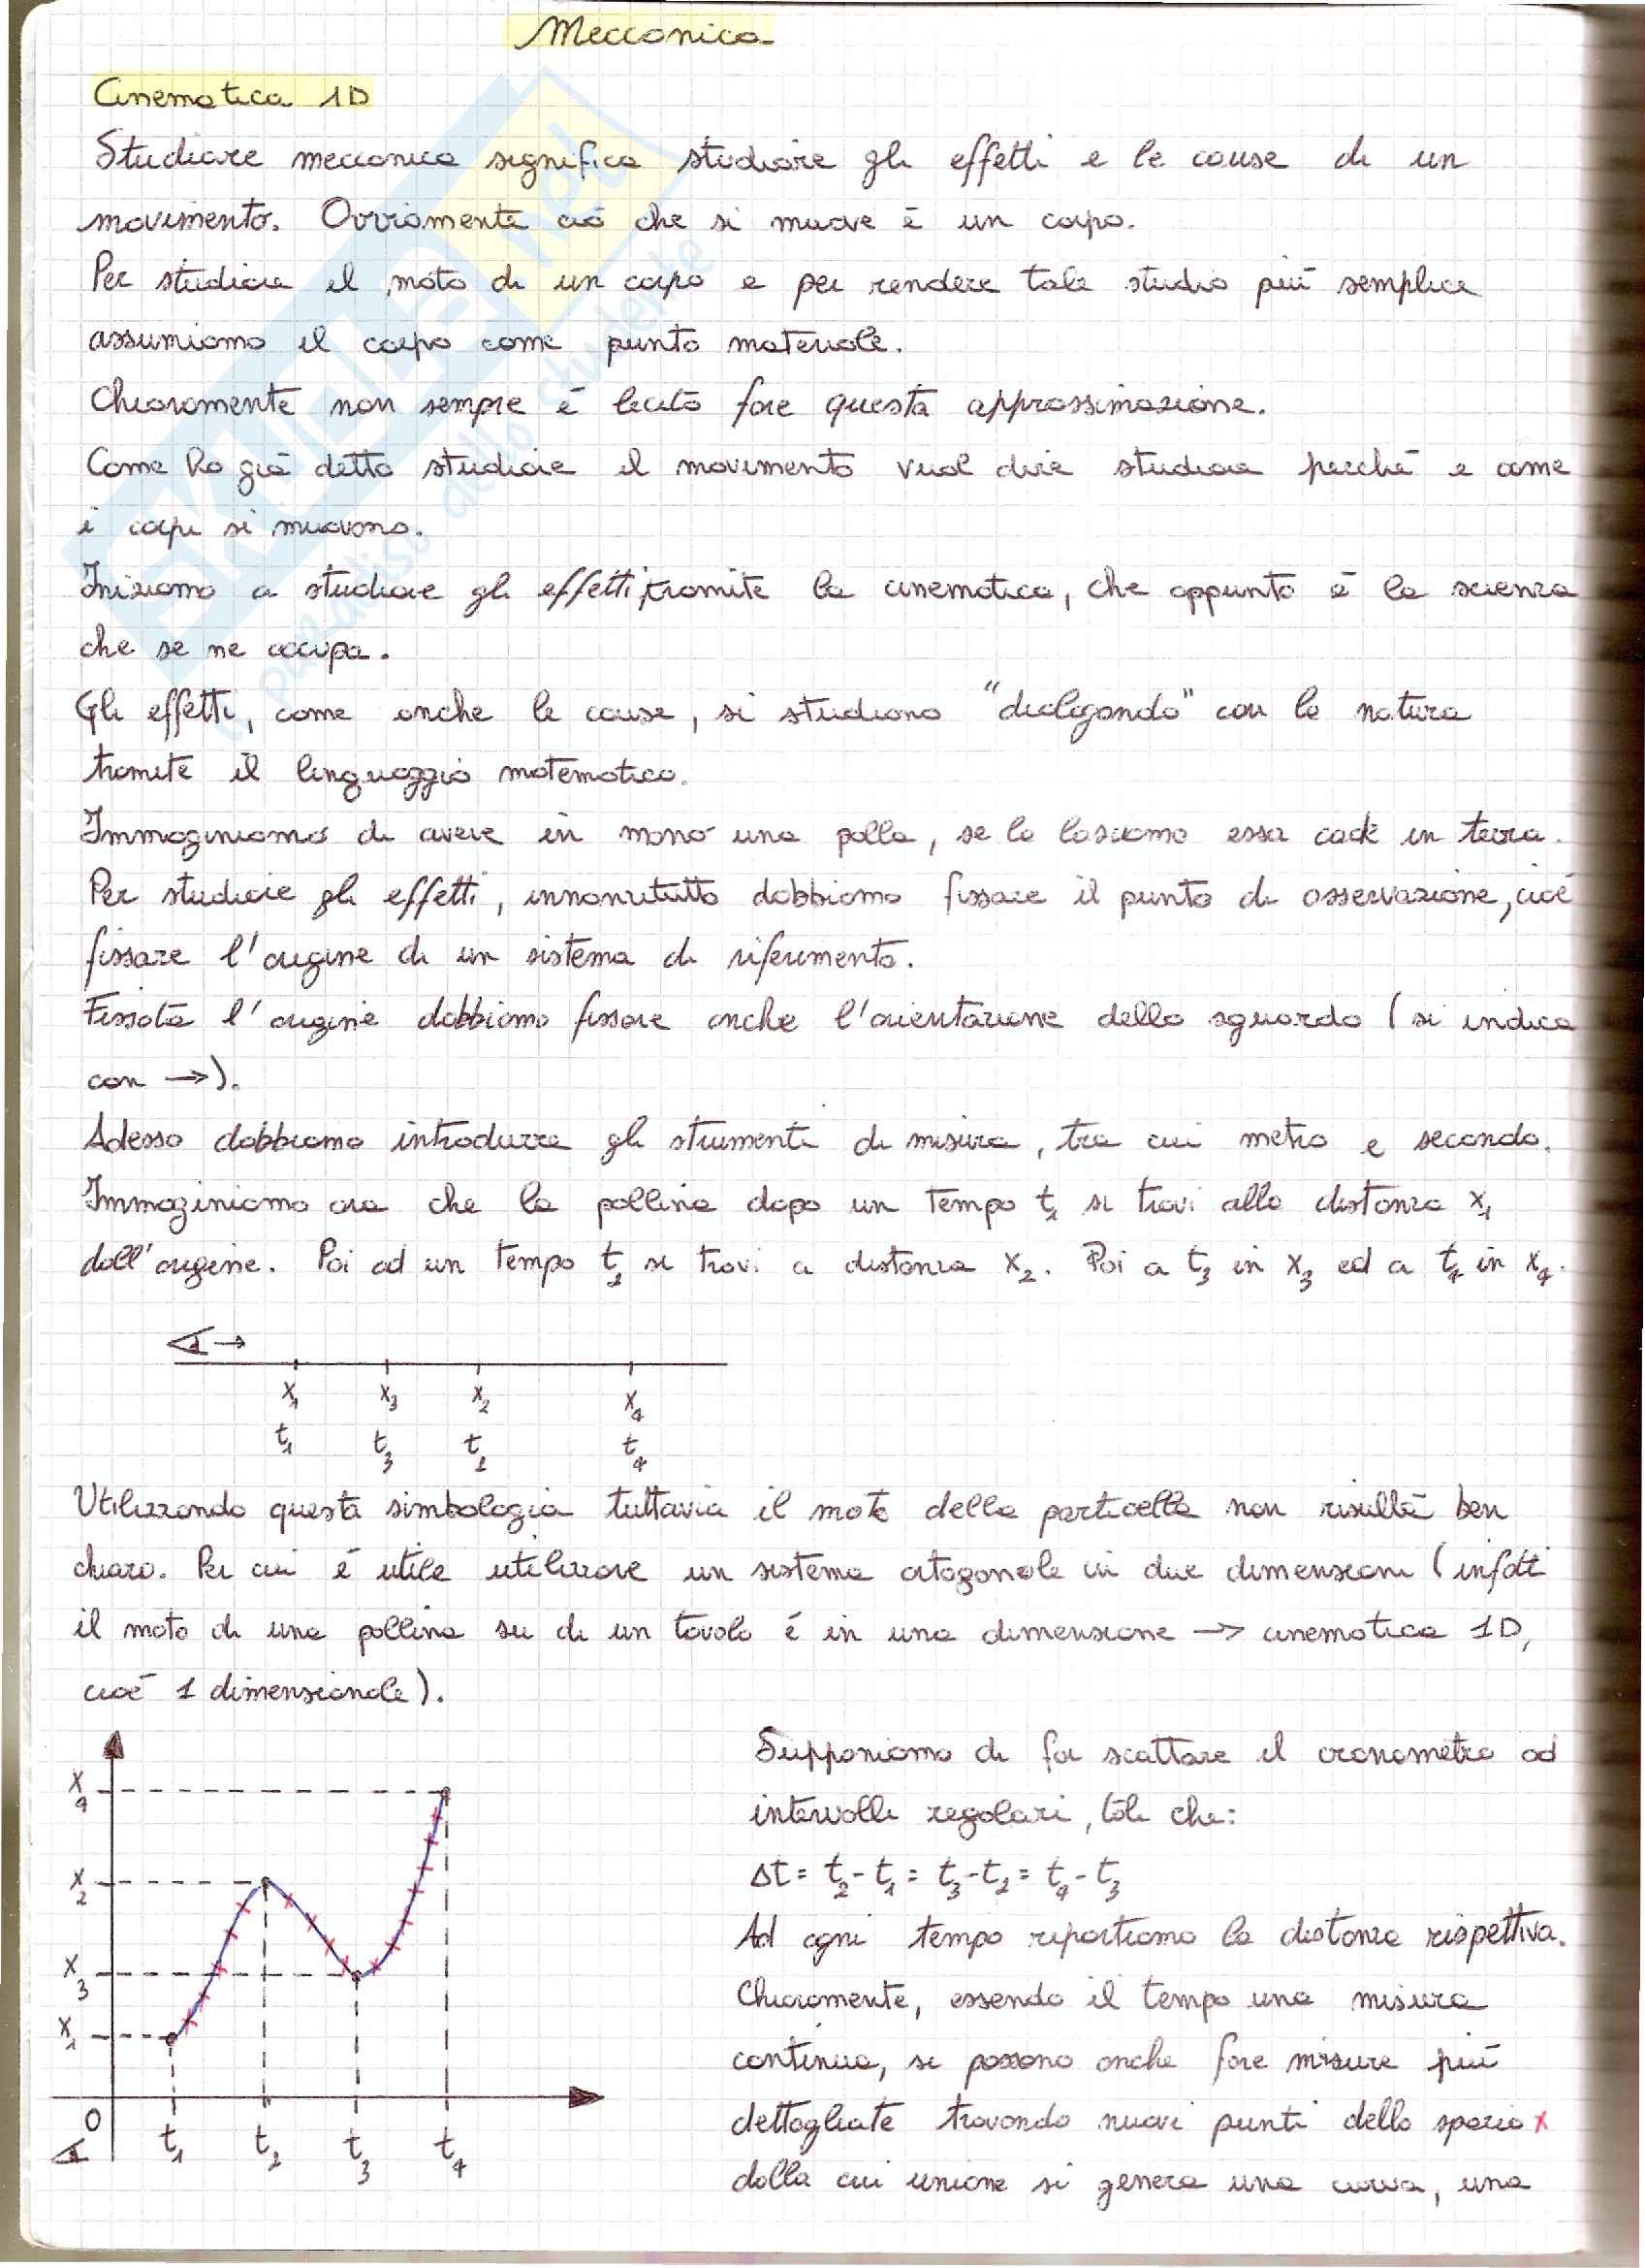 Meccanica
Cinematica 1D
Studiare meccanica significa studiare gli effetti e le cause di un
movimento. Ovviamente ciò che si muove è un corpo.
Per studiare il moto di un corpo e per rendere tale studio più semplice
assumiamo il corpo come punto materiale.
Chiaramente non sempre è lecito fare questa approssimazione.
Come ho già detto studiare il movimento vuol dire studiare perché e come
i corpi si muovono.
Iniziamo a studiare gli effetti, tramite la cinematica, che appunto è la scienza
che se ne occupa.
Gli effetti, come anche le cause, si studiano "dialogando" con la natura
tramite il linguaggio matematico.
Immaginiamo di avere in mano una palla, se la lasciamo essa cade in terra.
Per studiare gli effetti, innanzitutto dobbiamo fissare il punto di osservazione, cioè
fissare l'origine di un sistema di riferimento.
Fissata l'origine dobbiamo fissare anche l'orientazione dello sguardo (si indica
con →).
Adesso dobbiamo introdurre gli strumenti di misura, tra cui metro e secondo.
Immaginiamo ora che la pallina dopo un tempo t₁ si trovi alla distanza x₁
dall'origine. Poi ad un tempo t₂ si trovi a distanza x₂. Poi a t₃ in x₃ ed a t₄ in x₄.
→
x₁ x₃ x₂ x₄
t₁ t₃ t₂ t₄
Utilizzando questa simbologia tuttavia il moto della particella non risulta ben
chiaro. Per cui è utile utilizzare un sistema ortogonale in due dimensioni (infatti
il moto di una pallina su di un tavolo è in una dimensione → cinematica 1D,
cioè 1 dimensionale).
x₄
x₂
x₃
x₁
0
t₁ t₂ t₃ t₄
Supponiamo di far scattare il cronometro ad
intervalli regolari, tali che:
Δt = t₂-t₁ = t₃-t₂ = t₄-t₃
Ad ogni tempo riportiamo la distanza rispettiva.
Chiaramente, essendo il tempo una misura
continua, si possono anche fare misure più
dettagliate trovando nuovi punti dello spazio x
dalla cui unione si genera una curva, una